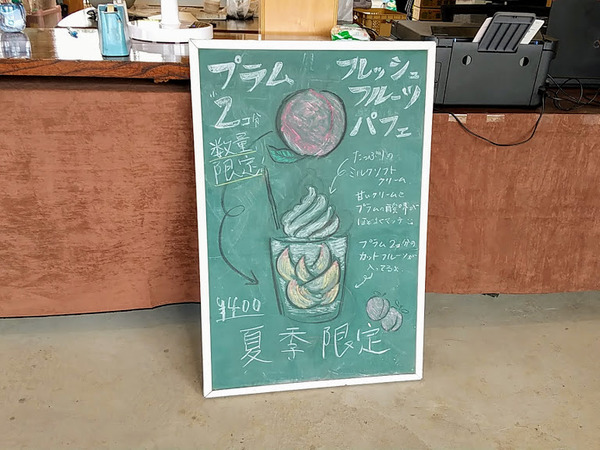 プラム
2コ分
数量
限定
フレッシュ
フルーツ
パフェ
たっぷりの
ミルクソフト
クリーム
甘いクリームと
プラムの酸味が
プラム2コ分の
カットフルーツが
入ってるよ
¥400
夏季限定